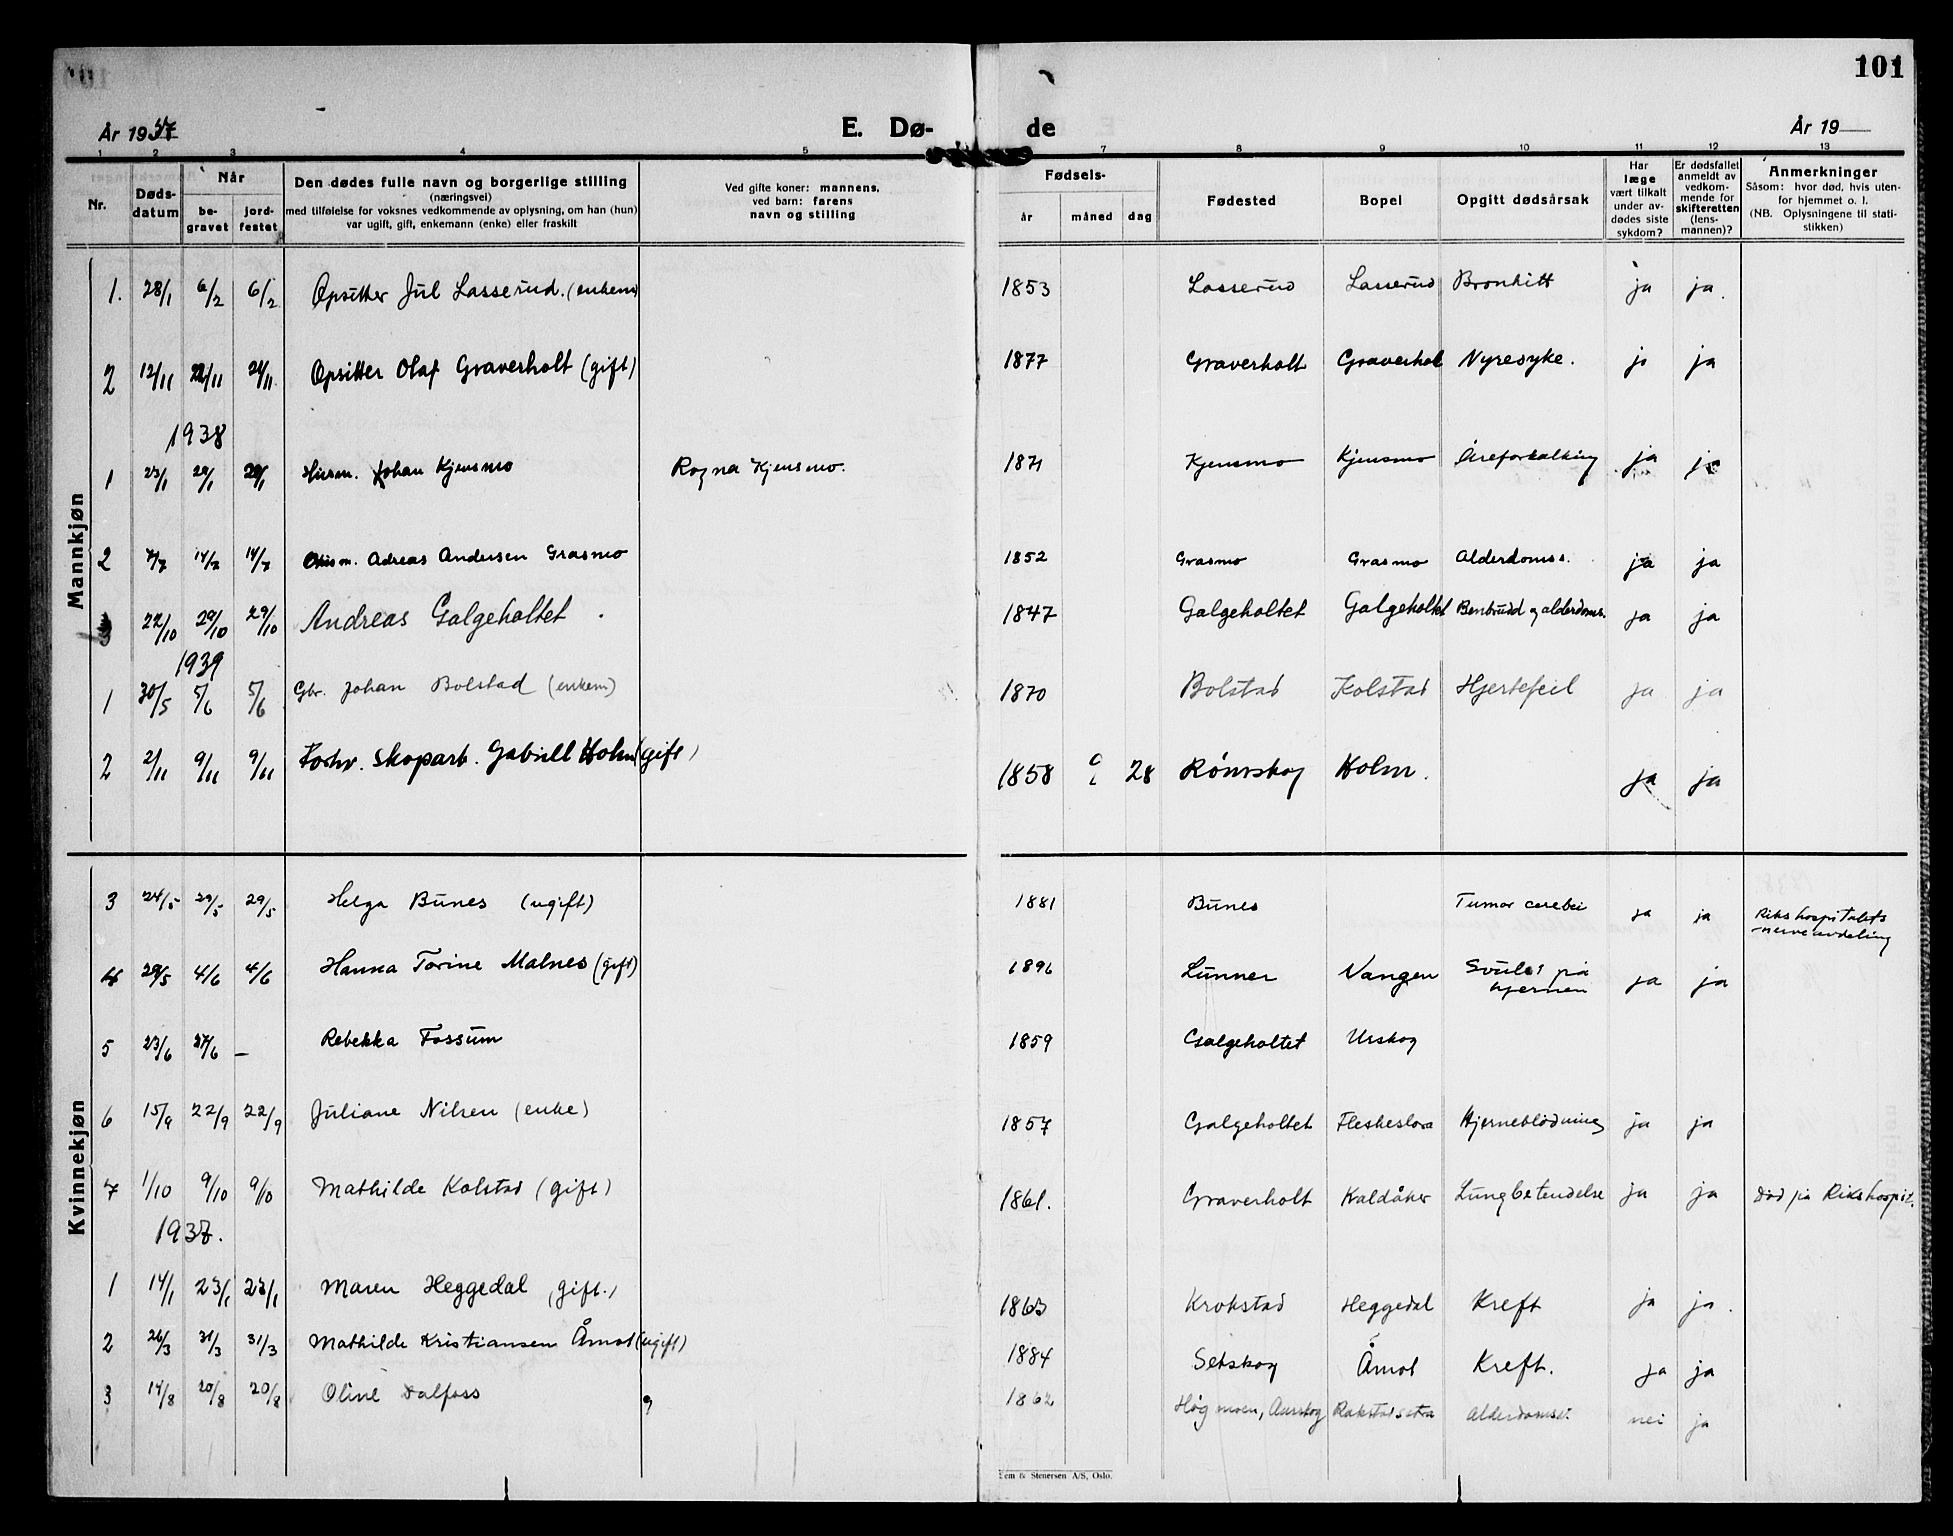 101
År 1937 E. Dø- de År 19
1 2 3 4 5 7 8 9 10 11 12 13
Nr. Døds-datum Når be-gravet jord-festet Den dødes fulle navn og borgerlige stilling (næringsvei) med tilføielse for voksnes vedkommende av oplysning, om han (hun) var ugift, gift, enkemann (enke) eller fraskilt Ved gifte koner: mannens, ved barn: farens navn og stilling Fødsels- år måned dag Fødested Bopel Opgitt dødsårsak Har læge vært tilkalt under av-dødes siste sykdom? Er dødsfallet anmeldt av vedkom-mende for skifteretten (lens-mannen)? Anmerkninger Såsom: hvor død, hvis uten-for hjemmet o. l. (NB. Oplysningene til stati-stikken)
Mannkjøn
1. 28/1 6/2 6/2 Opsitter Jul Lasserud. (enkem) 1853 Lasserud Lasserud Bronkitt ja ja.
2 12/11 22/11 24/11 Opsitter Olaf Graverholt (gift) 1877 Graverholt Graverhol Nyresyke. ja ja
1938
1 23/1 29/1 29/1 Husm. Johan Kjensmo Ragna Kjensmo. 1871 Kjensmo Kjensmo Åreforkalkning ja ja
2 7/7 14/7 14/7 Adreas Andersen Grasmo 1852 Grasmo Grasmo Alderdomss. ja ja
3 22/10 29/10 29/10 Andreas Galgeholtet. 1847 Galgeholtet Galgeholtet Benbrudd og alderdoms. ja ja
1939
1 30/5 5/6 5/6 Gbr. Johan Bolstad (enkem) 1870 Bolstad Kolstad Hjertefeil ja ja
2 2/11 9/11 9/11 Forhv. Skogarb. Gabriell Holm (gift) 1858 28 Rømskog Holm. ja ja
Kvinnekjøn
3 24/5 29/5 29/5 Helga Bunes (ugift) 1881 Bunes Tumor cerebri ja ja Rikshospitalets nerveavdeling
4 29/5 4/6 4/6 Hanna Torine Malnes (gift) 1896 Lunner Vangen Svulst på hjernen ja ja
5 23/6 27/6 — Rebekka Fossum 1859 Galgeholtet Urskog
6 15/9 22/9 22/9 Juliane Nilsen (enke) 1857 Galgeholtet Fleskeslora Hjerneblødning ja ja
7 1/10 9/10 9/10 Mathilde Kolstad (gift) 1861. Graverholt Kaldåker Lungbetendelse ja ja død på Rikshospit.
1937.
1 14/1 23/1 23/1 Maren Heggedal (gift.) 1863 Krokstad Heggedal Kreft ja ja.
2 26/3 31/3 31/3 Mathilde Kristiansen Åmot (ugift) 1884 Setskog Åmot Kreft. ja ja
3 14/8 20/8 20/8 Oline Dalfoss 1862 Høgmoen, Aurskog Rakstadsetra Alderdomss. nei ja
em & Stenersen A/S, Oslo.